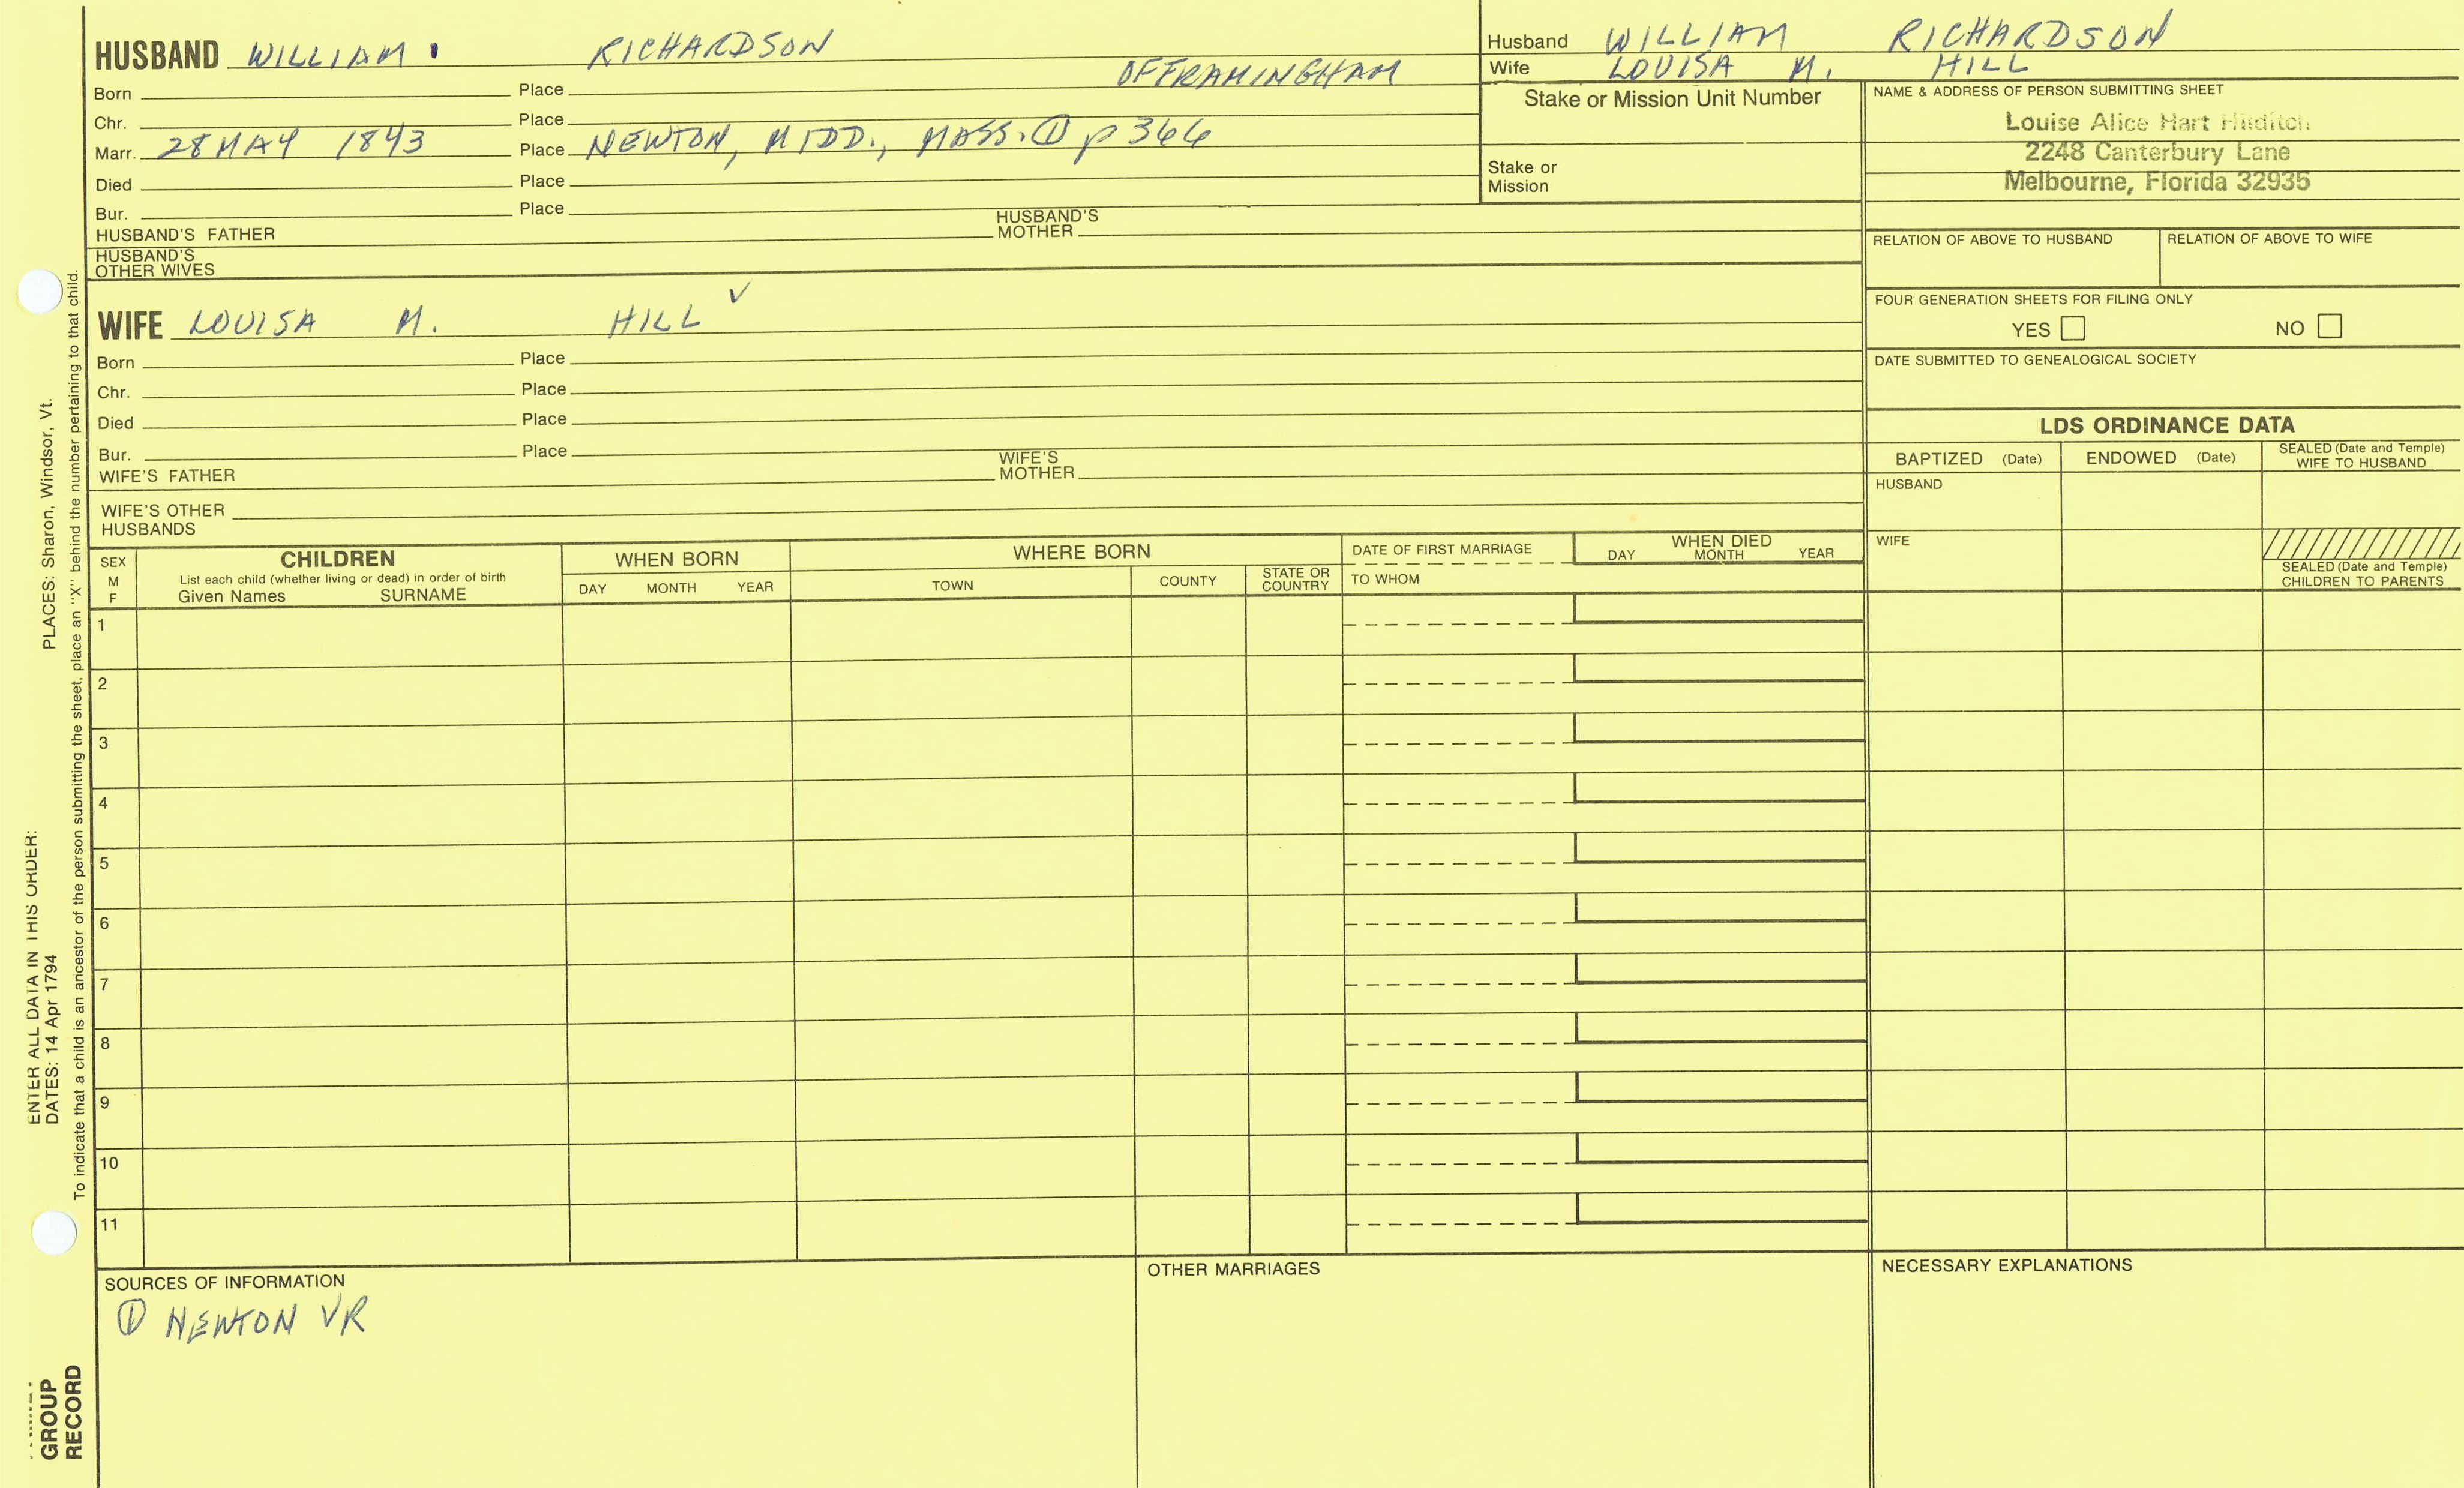 HUSBAND WILLIAM RICHARDSON
OF FRAMINGHAM
Born Place
Chr. Place
Marr. 28 MAY 1843 Place NEWTON, MIDD., MASS. ① p 366
Died Place
Bur. Place
HUSBAND'S FATHER HUSBAND'S MOTHER
HUSBAND'S OTHER WIVES
WIFE LOUISA M. HILL ✓
Born Place
Chr. Place
Died Place
Bur. Place
WIFE'S FATHER WIFE'S MOTHER
WIFE'S OTHER HUSBANDS
Husband WILLIAM RICHARDSON
Wife LOUISA M. HILL
Stake or Mission Unit Number
Stake or Mission
NAME & ADDRESS OF PERSON SUBMITTING SHEET
Louise Alice Hart
2248 Canterbury Lane
Melbourne, Florida 32935
RELATION OF ABOVE TO HUSBAND RELATION OF ABOVE TO WIFE
FOUR GENERATION SHEETS FOR FILING ONLY
YES NO
DATE SUBMITTED TO GENEALOGICAL SOCIETY
LDS ORDINANCE DATA
BAPTIZED (Date) ENDOWED (Date) SEALED (Date and Temple) WIFE TO HUSBAND
HUSBAND
WIFE
SEALED (Date and Temple) CHILDREN TO PARENTS
SEX M F
CHILDREN
List each child (whether living or dead) in order of birth
Given Names SURNAME
WHEN BORN
DAY MONTH YEAR
WHERE BORN
TOWN COUNTY STATE OR COUNTRY
DATE OF FIRST MARRIAGE
TO WHOM
WHEN DIED
DAY MONTH YEAR
1
2
3
4
5
6
7
8
9
10
11
SOURCES OF INFORMATION
① NEWTON VR
OTHER MARRIAGES
NECESSARY EXPLANATIONS
ENTER ALL DATA IN THIS ORDER:
DATES: 14 Apr 1794 PLACES: Sharon, Windsor, Vt.
To indicate that a child is an ancestor of the person submitting the sheet, place an "X" behind the number pertaining to that child.
GROUP
RECORD